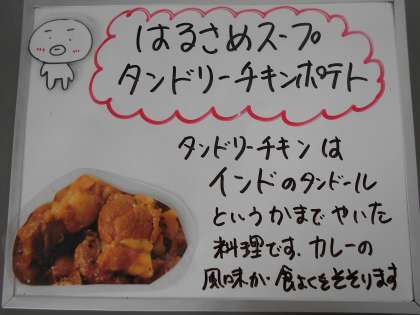 はるさめスープ
タンドリーチキンポテト
タンドリーチキンは
インドのタンドール
というかまでやいた
料理です。カレーの
風味が食よくをそそります